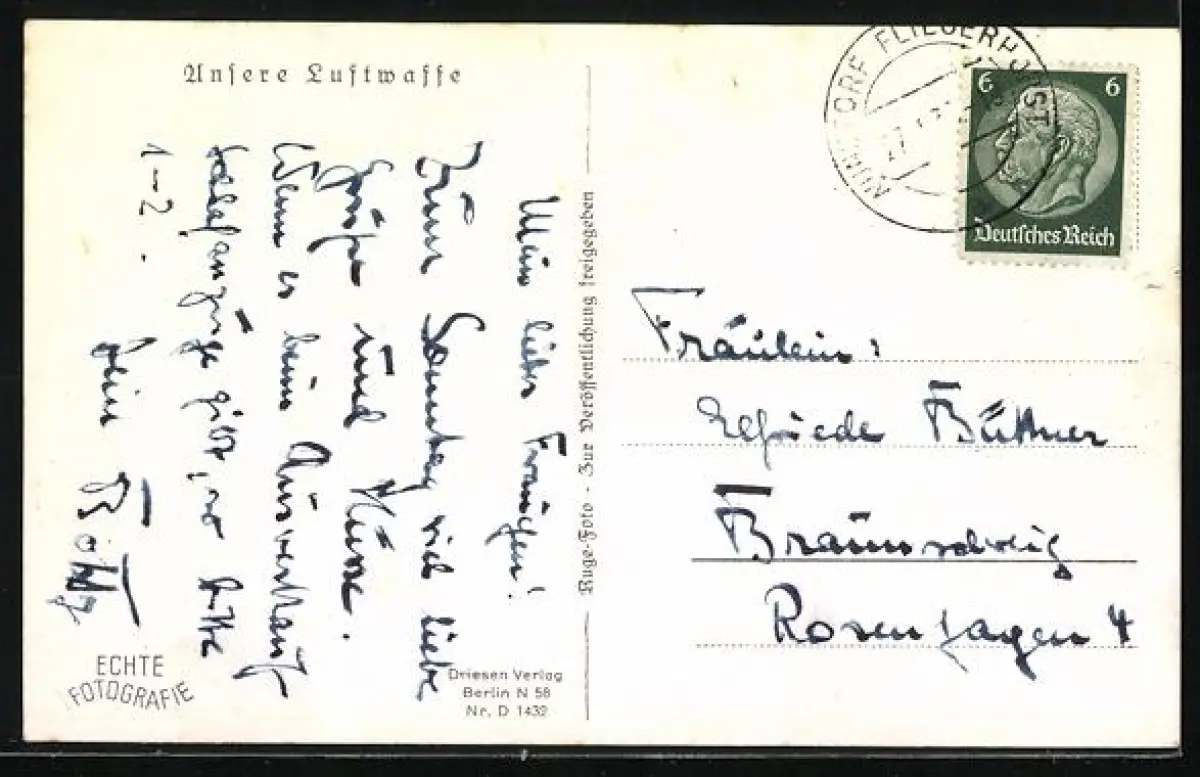 Unsere Luftwaffe
Mein liebes Frauchen!
Zum Sonntag viel liebe
Grüße und Küsse.
Wenn es beim Ausverkauf
Schlafanzüge gibt, so bitte
1-2.
Dein
ECHTE
FOTOGRAFIE
Driesen Verlag
Berlin N 58
Nr. D 1432
Ruge-Foto - Zur Veröffentlichung freigegeben
FLIEGERHORST
27.1.
6 6
Deutsches Reich
Fräulein:
Elfriede Büttner
Braunschweig
Rosenhagen 4